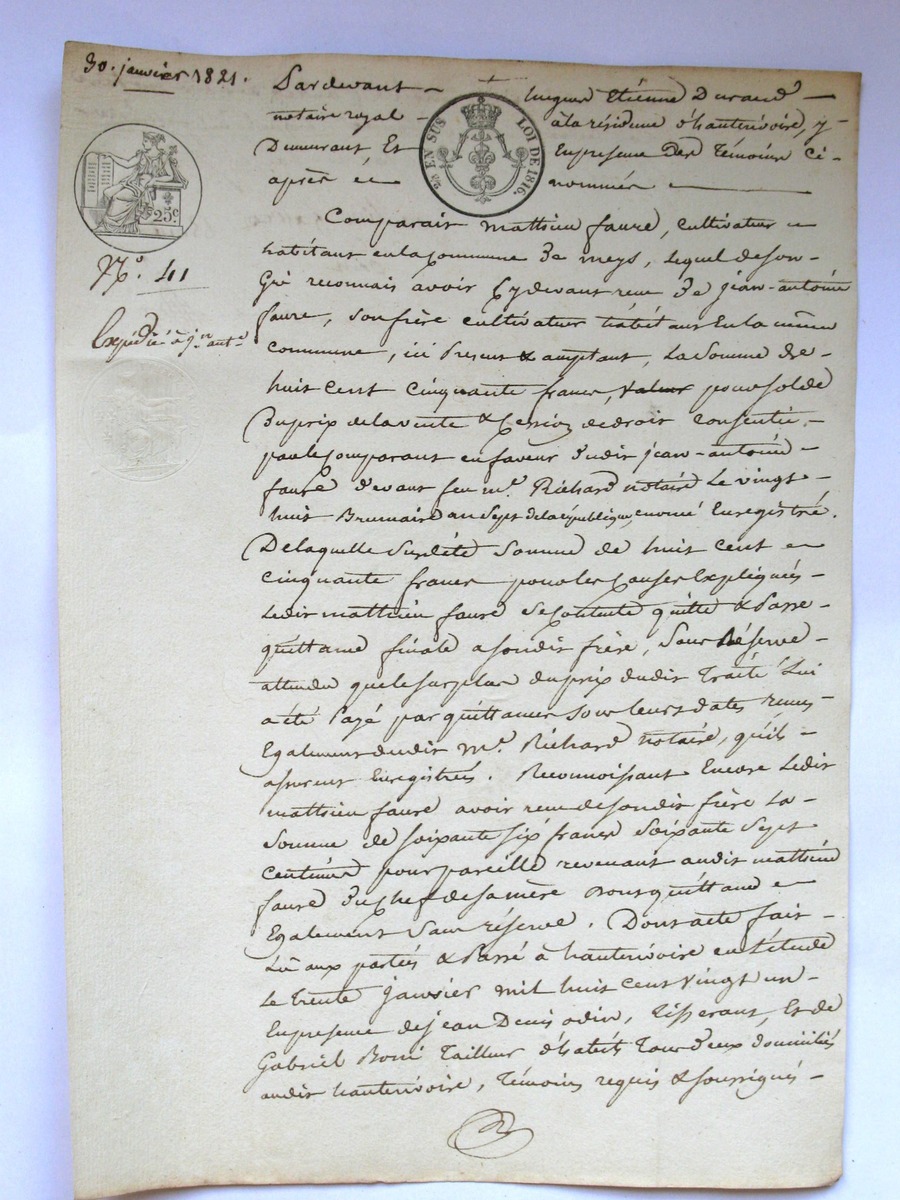 30. janvier 1821.
Pardevant hugues Etiénne Durand
notaire royal à la résidence d'hauterivoire, y
Demeurant Et En presence Des Témoins Ci-
après nommés
EN SUS LOI DE 1816.
25c
N° 41
Expédié à jn ante
Comparait matthieu faure, Cultivateur
habitant en la Commune De meys, lequel de son
Gré reconnait avoir Cy devant reçu De jean-antoine
faure, son frère cultivateur habitant En la même
commune, ici présent & acceptant, La Somme de
huit cent cinquante francs, pour solde
Du prix de la vente & Cession de droit Consentie
par le Comparant en faveur dudit jean-antoine
faure devant feu me. Richard notaire Le vingt
huit Brumaire an Sept de la république, Enregistré.
De laquelle Susdite Somme de huit cent
cinquante francs pour les Causes Expliquées
Ledit matthieu faure Se Contente quitte & Passe
quittance finale a son dit frère, Sans Réserve
attendu que le surplus du prix dudit Traité Lui
a été Payé par quittances Sous leurs dates reçues
Egalement dudit me. Richard notaire, qu'ils
assurent Enregistrées. Reconnoissant Encore Ledit
matthieu faure avoir reçu de son dit frère La
Somme de soixante six francs Soixante Sept
Centimes pour pareille revenant audit matthieu
faure Du Chef de sa mère Dont quittance
Egalement Sans réserve. Dont acte fait
Lû aux parties & Passé à hauterivoire en L'étude
Le trente Janvier mil huit cent Vingt un
En presence de jean Denis odin, Tisserant, Et de
Gabriel Boni Tailleur d'habits Tous Deux domiciliés
audit hauterivoire, Témoins requis & soussignés